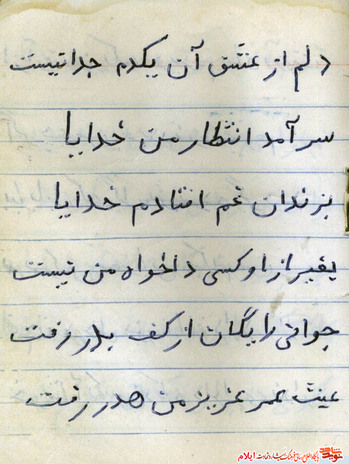 دلم از عشق آن یکدم جدا نیست
سر آمد انتظار من خدایا
بزندان غم افتادم خدایا
بغیر از او کسی دلخواه من نیست
جوانی رایگان از کف بدر رفت
عبث عمر عزیز من هدر رفت